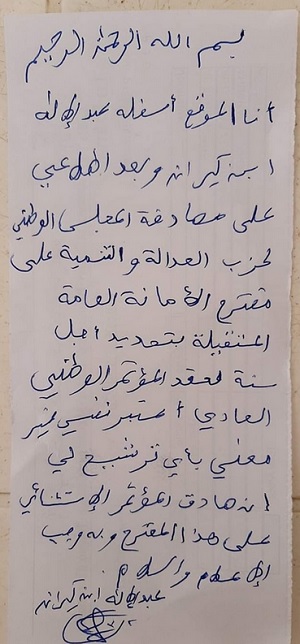 بسم الله الرحمان الرحيم
أنا الموقع أسفله عبد الإلاه
ابن كيران وبعد اطلاعي
على مصادقة المجلس الوطني
لحزب العدالة والتنمية على
مقترح الأمانة العامة
المستقيلة بتحديد أجل
سنة لعقد المؤتمر الوطني
العادي أعتبر نفسي غير
معني بأي ترشيح لي
إن صادق المؤتمر الإستثنائي
على هذا المقترح وبه وجب
الإعلام والسلام.
عبد الإلاه ابن كيران